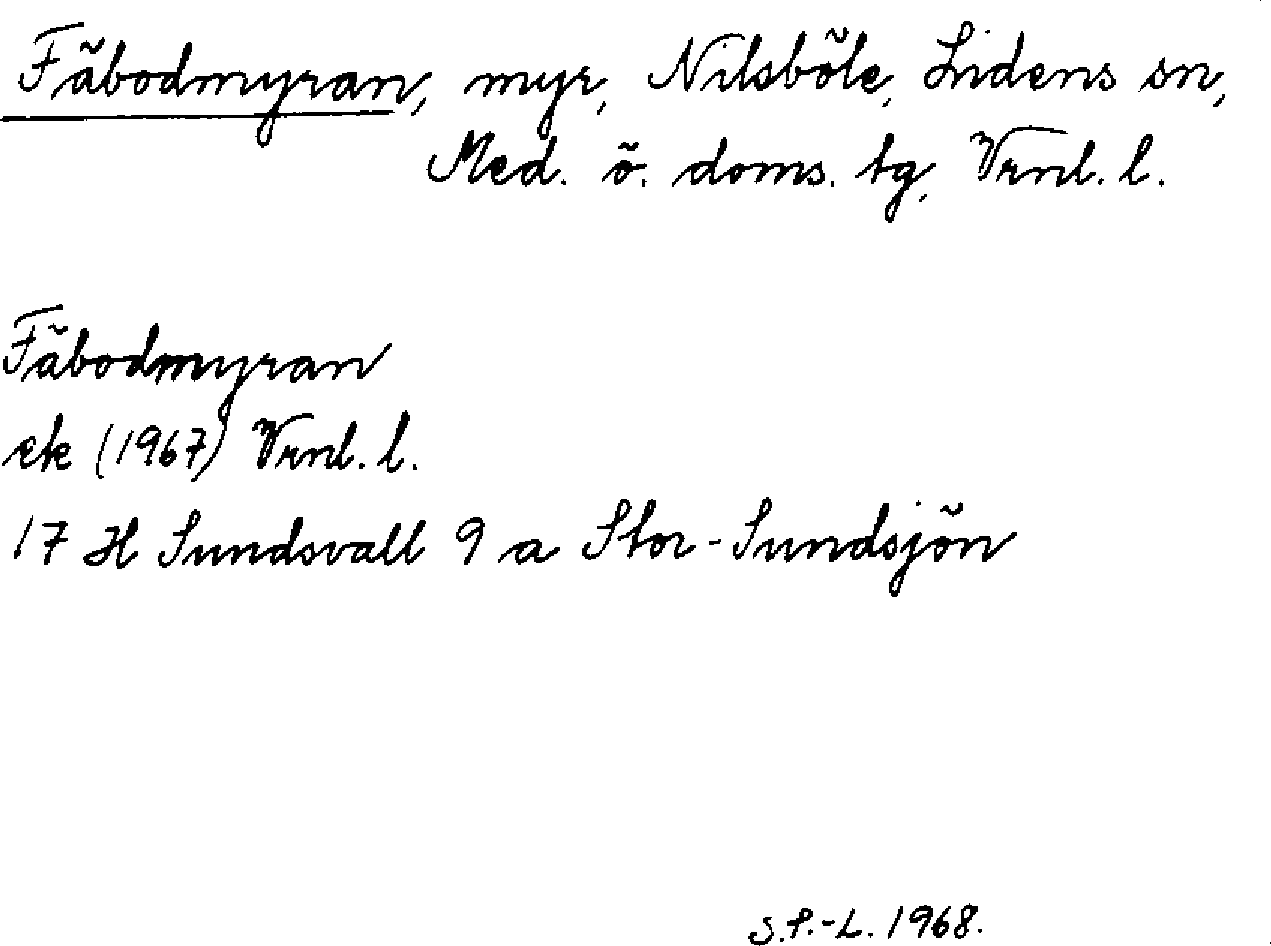 Fäbodmyran, myr, Nilsböle, Lidens sn,
Med. ö. doms. tg, Vrnl. l.
Fäbodmyran
ek (1967) Vrnl. l.
17 H Sundsvall 9 a Stor-Sundsjön
S.P.-L. 1968.